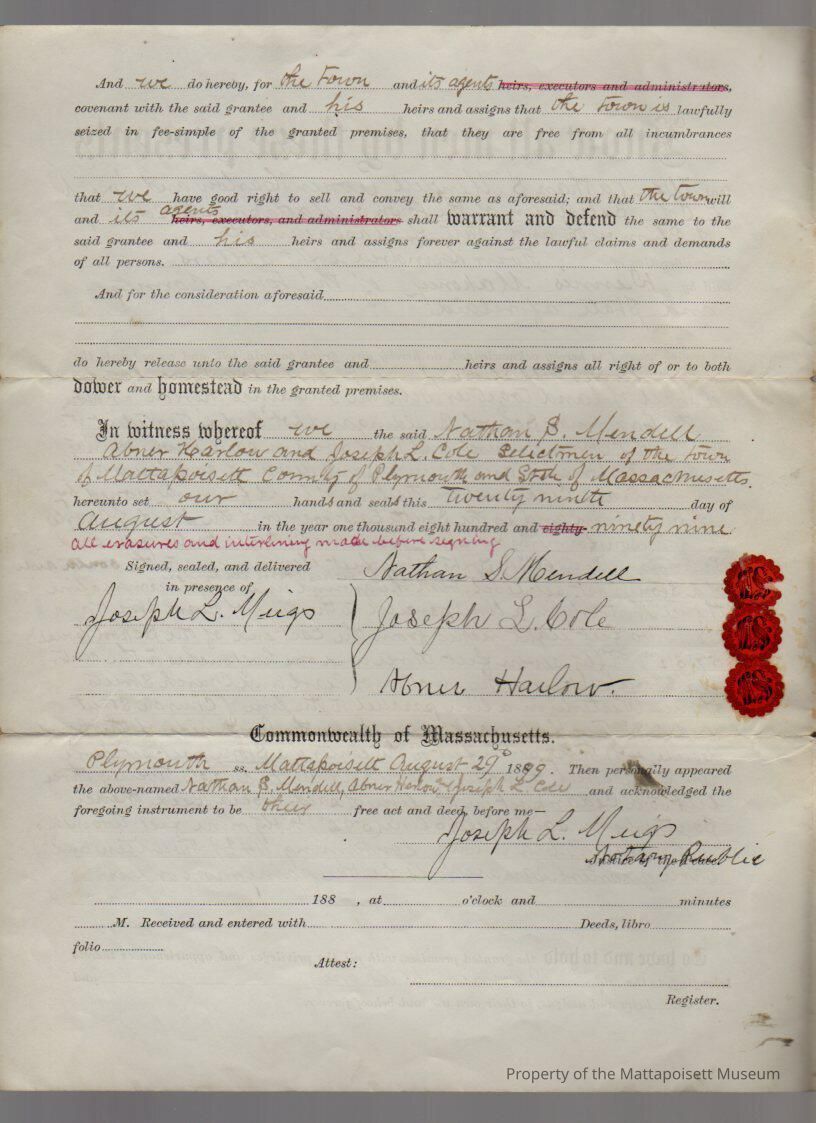 And we do hereby, for the Town and its agents heirs, executors and administrators,
covenant with the said grantee and his heirs and assigns that the town is lawfully
seized in fee-simple of the granted premises, that they are free from all incumbrances
that we have good right to sell and convey the same as aforesaid; and that the town will
and its agents heirs, executors, and administrators shall warrant and defend the same to the
said grantee and his heirs and assigns forever against the lawful claims and demands
of all persons.
And for the consideration aforesaid
do hereby release unto the said grantee and heirs and assigns all right of or to both
dower and homestead in the granted premises.
In witness whereof we the said Nathan S. Mendell
Abner Harlow and Joseph L. Cole Selectmen of the town
of Mattapoisett County of Plymouth and State of Massachusetts
hereunto set our hands and seals this twenty ninth day of
August in the year one thousand eight hundred and eighty ninety nine
All erasures and interlining made before signing
Signed, sealed, and delivered
in presence of
Joseph L. Meigs
Nathan S. Mendell
Joseph L. Cole
Abner Harlow.
Commonwealth of Massachusetts.
Plymouth ss. Mattapoisett August 29th 1899. Then personally appeared
the above-named Nathan S. Mendell, Abner Harlow & Joseph L. Cole and acknowledged the
foregoing instrument to be their free act and deed, before me—
Joseph L. Meigs
Justice of the Peace. Notary Public
188 , at o'clock and minutes
M. Received and entered with Deeds, libro
folio
Attest:
Register.
Property of the Mattapoisett Museum